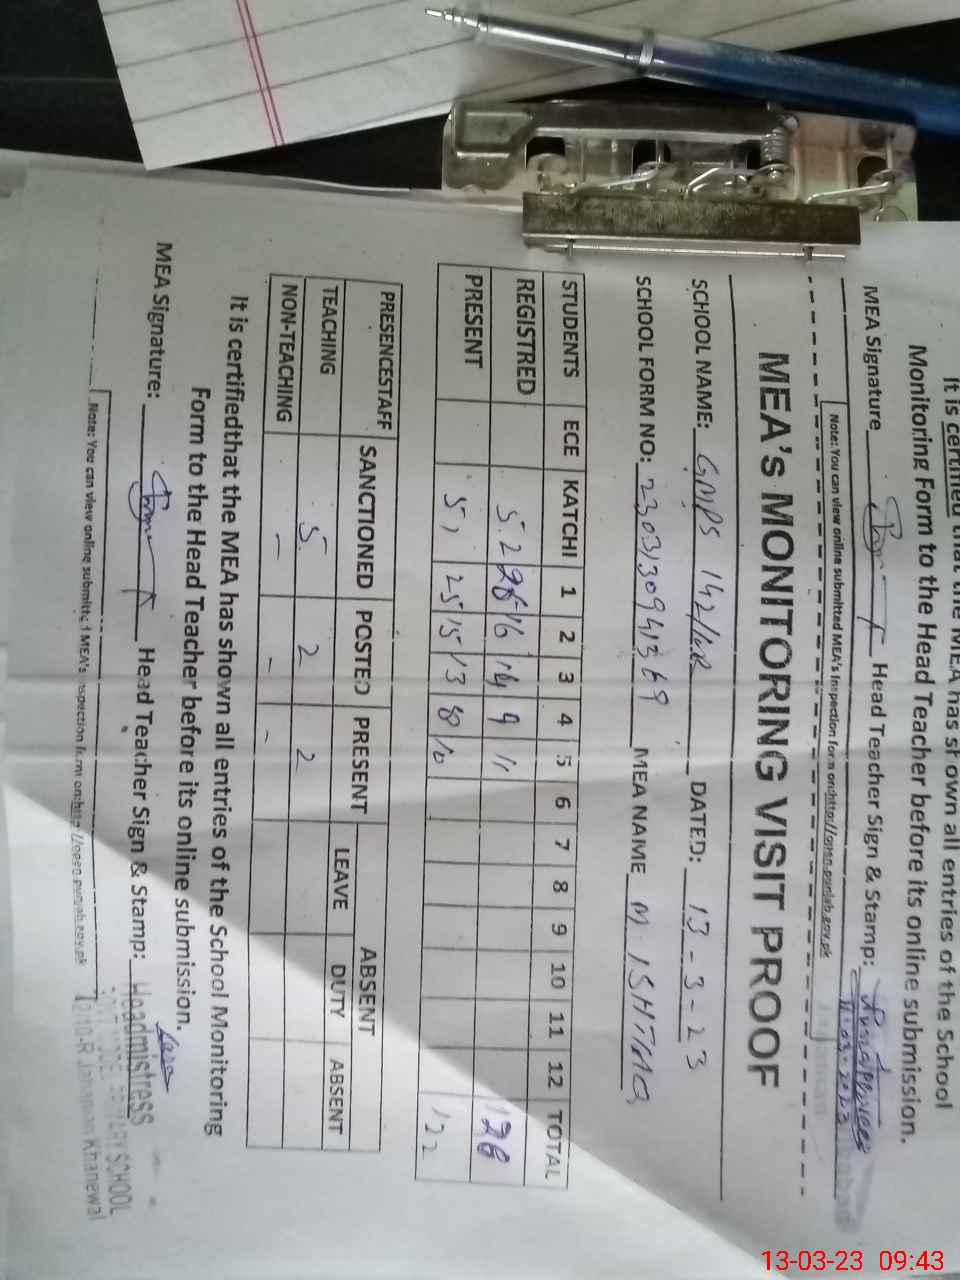 It is certified that the MEA has shown all entries of the School
Monitoring Form to the Head Teacher before its online submission.
MEA Signature Head Teacher Sign & Stamp:
11-03-2023
Note: You can view online submitted MEA's Inspection form on:http://open.punjab.gov.pk
MEA's MONITORING VISIT PROOF
SCHOOL NAME: GMPS 142/10R DATED: 13-3-23
SCHOOL FORM NO: MEA NAME M. ISHTIAQ
STUDENTS ECE KATCHI 1 2 3 4 5 6 7 8 9 10 11 12 TOTAL
REGISTRED 52 26 16 14 9 11 128
PRESENT 51 25 15 13 8 10 122
PRESENCESTAFF SANCTIONED POSTED PRESENT ABSENT
LEAVE DUTY ABSENT
TEACHING 5 2 2
NON-TEACHING - - -
It is certifiedthat the MEA has shown all entries of the School Monitoring
Form to the Head Teacher before its online submission.
MEA Signature: Head Teacher Sign & Stamp:
Headmistress
SCHOOL
Jahanian Khanewal
Note: You can view online submitted MEA's Inspection form on:http://open.punjab.gov.pk
13-03-23 09:43